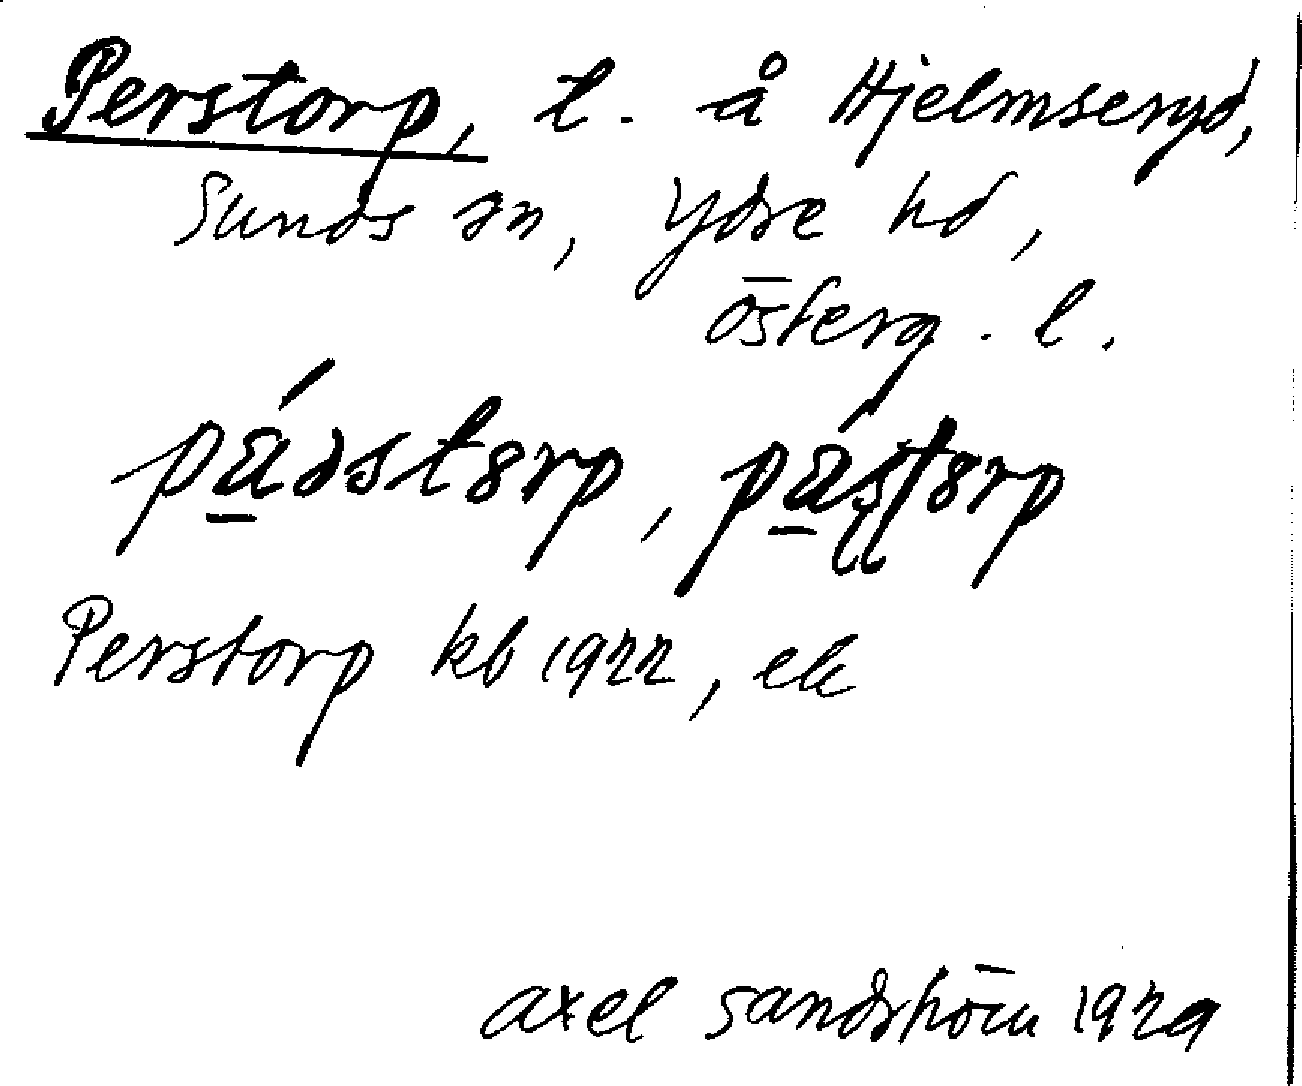 Perstorp, t. å Hjelmseryd,
Sunds sn, Ydre hd,
Österg. l.
pá̱ɹstɞrp, pá̱ʂʈɞrp
Perstorp kb 1922, ek
Axel Sandström 1929